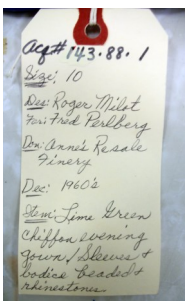 Acq# 143.88.1
Size: 10
Des: Roger Milot
For: Fred Perlberg
Don: Anne's Resale
Finery
Dec: 1960's
Item: Lime Green
chiffon evening
gown/Sleeves &
bodice beaded &
rhinestones